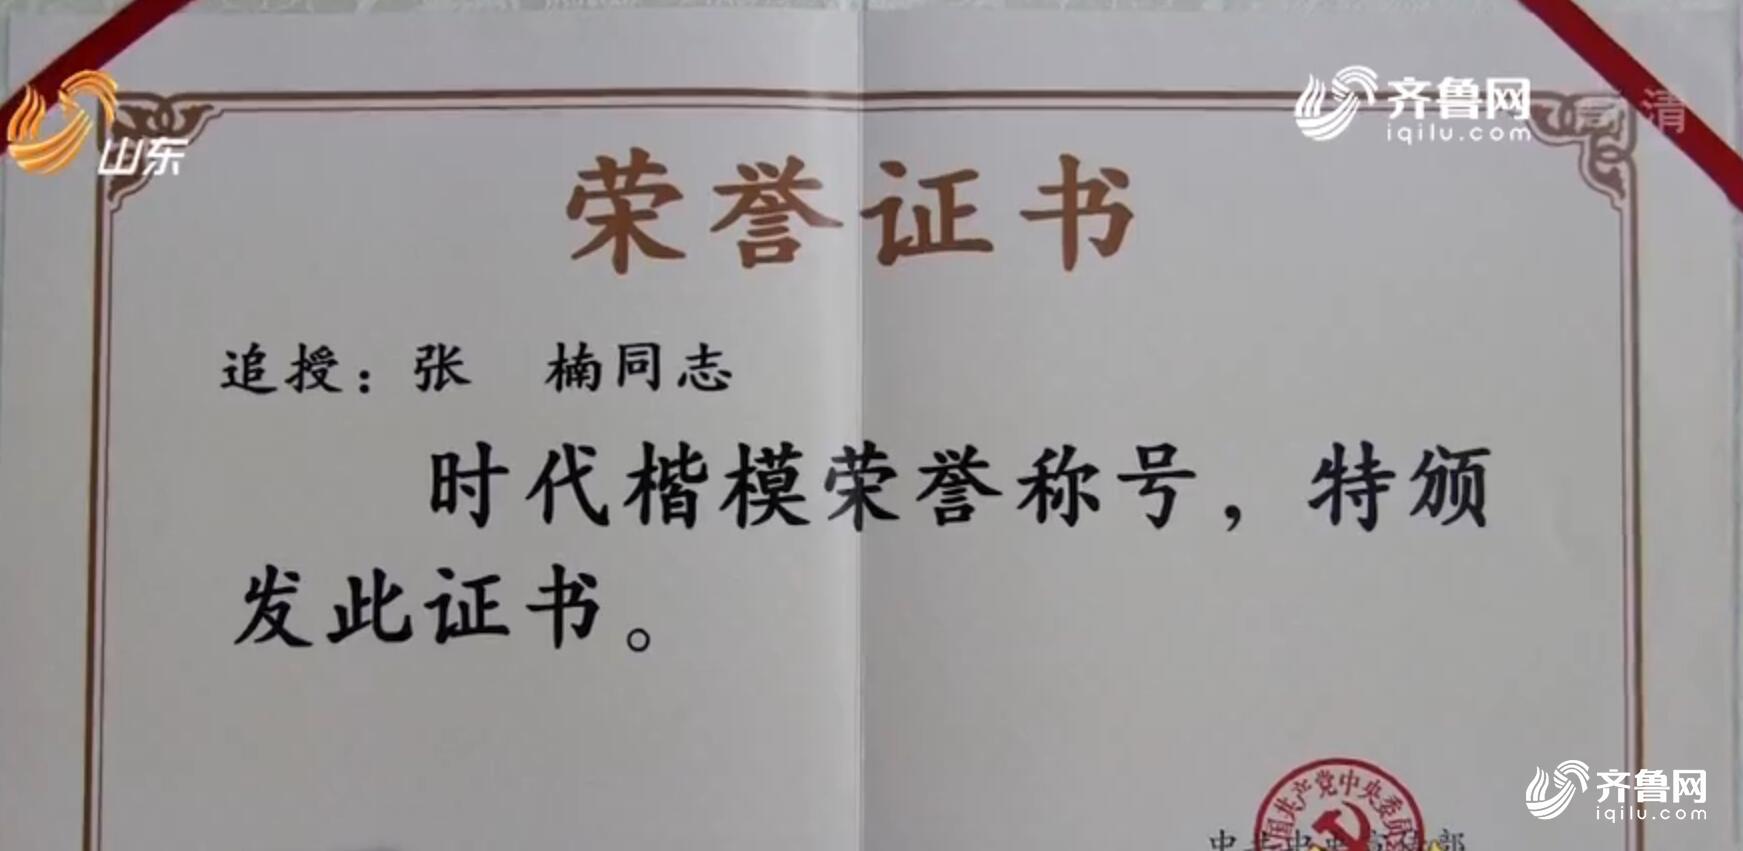 山东
齐鲁网
iqilu.com
高清
荣誉证书
追授：张　楠同志
时代楷模荣誉称号，特颁
发此证书。
国共产党中央委员
齐鲁网
iqilu.com